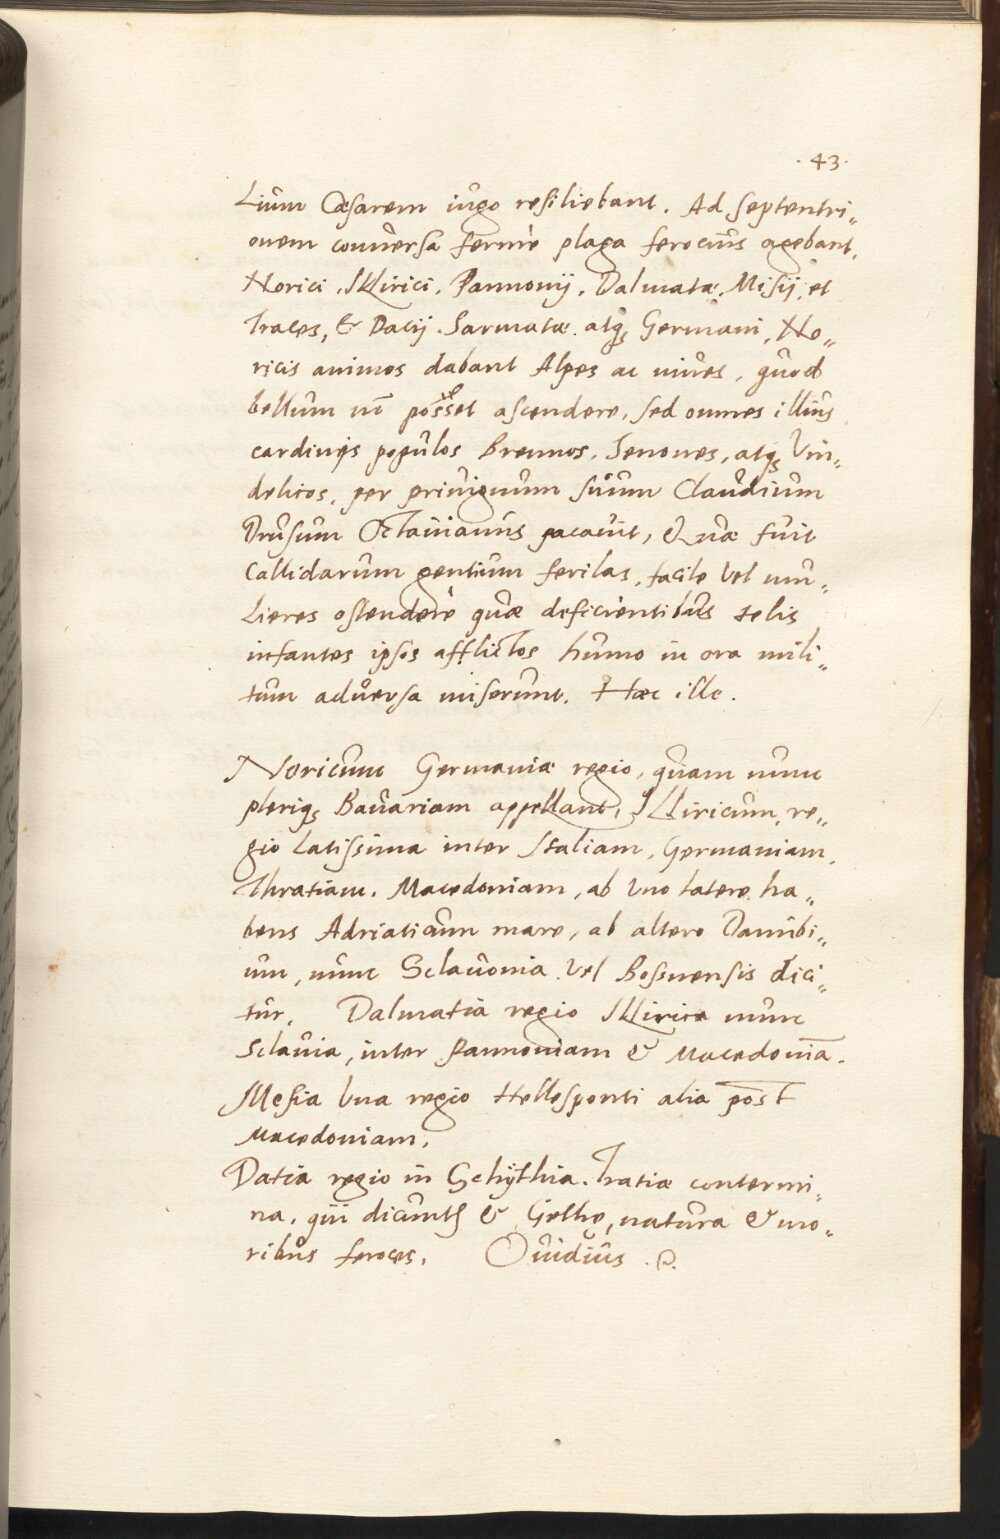 . 43 .
Lium Cæsarem iugo resiliebant. Ad septentri„
onem conuersa ferme plaga ferocius agebant,
Norici, Illirici, Pannonij, Dalmatæ, Misij, et
Traces, & Dacij Sarmatæ atq; Germani, No„
ricis animos dabant Alpes ac niues, quod
bellum nō posset ascendere, sed omnes illius
cardinis populos Brennos, Senones, atq; Vin„
delicos, per priuignum suum Claudium
Drusum Octauianus pacauit, Quæ fuit
Callidarum gentium feritas, facile vel mu„
lieres ostendere quæ deficientibus telis
infantes ipsos afflictos humo in ora mili„
tum aduersa miserunt. Hæc ille.
Noricum Germaniæ regio, quam nunc
pleriq; Bauariam appellant, Illiricum, re„
gio Latissima inter Italiam, Germaniam,
Thratiam, Macedoniam, ab vno latere ha„
bens Adriaticum mare, ab altero Danubi„
um, nunc Sclauonia vel Bossnensis dici„
tur. Dalmatia regio Illirica nunc
Sclauia, inter Pannoniam & Macedoniā.
Mesia vna regio Hellesponti alia post
Macedoniam.
Datia regio in Schÿthia Tratiæ contermi„
na, qui dicunt & Gethe, natura & mo„
ribus feroces. Ouidius